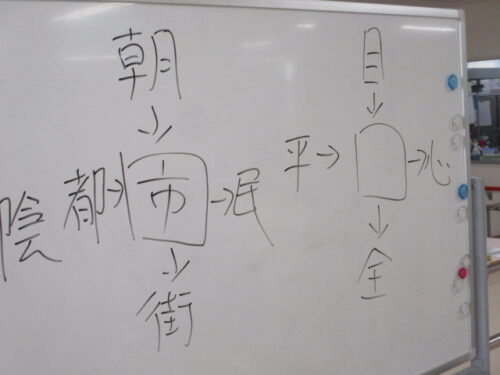 朝
↓
陰
都→市→民
↓
街
目
↓
平→□→心
↓
全